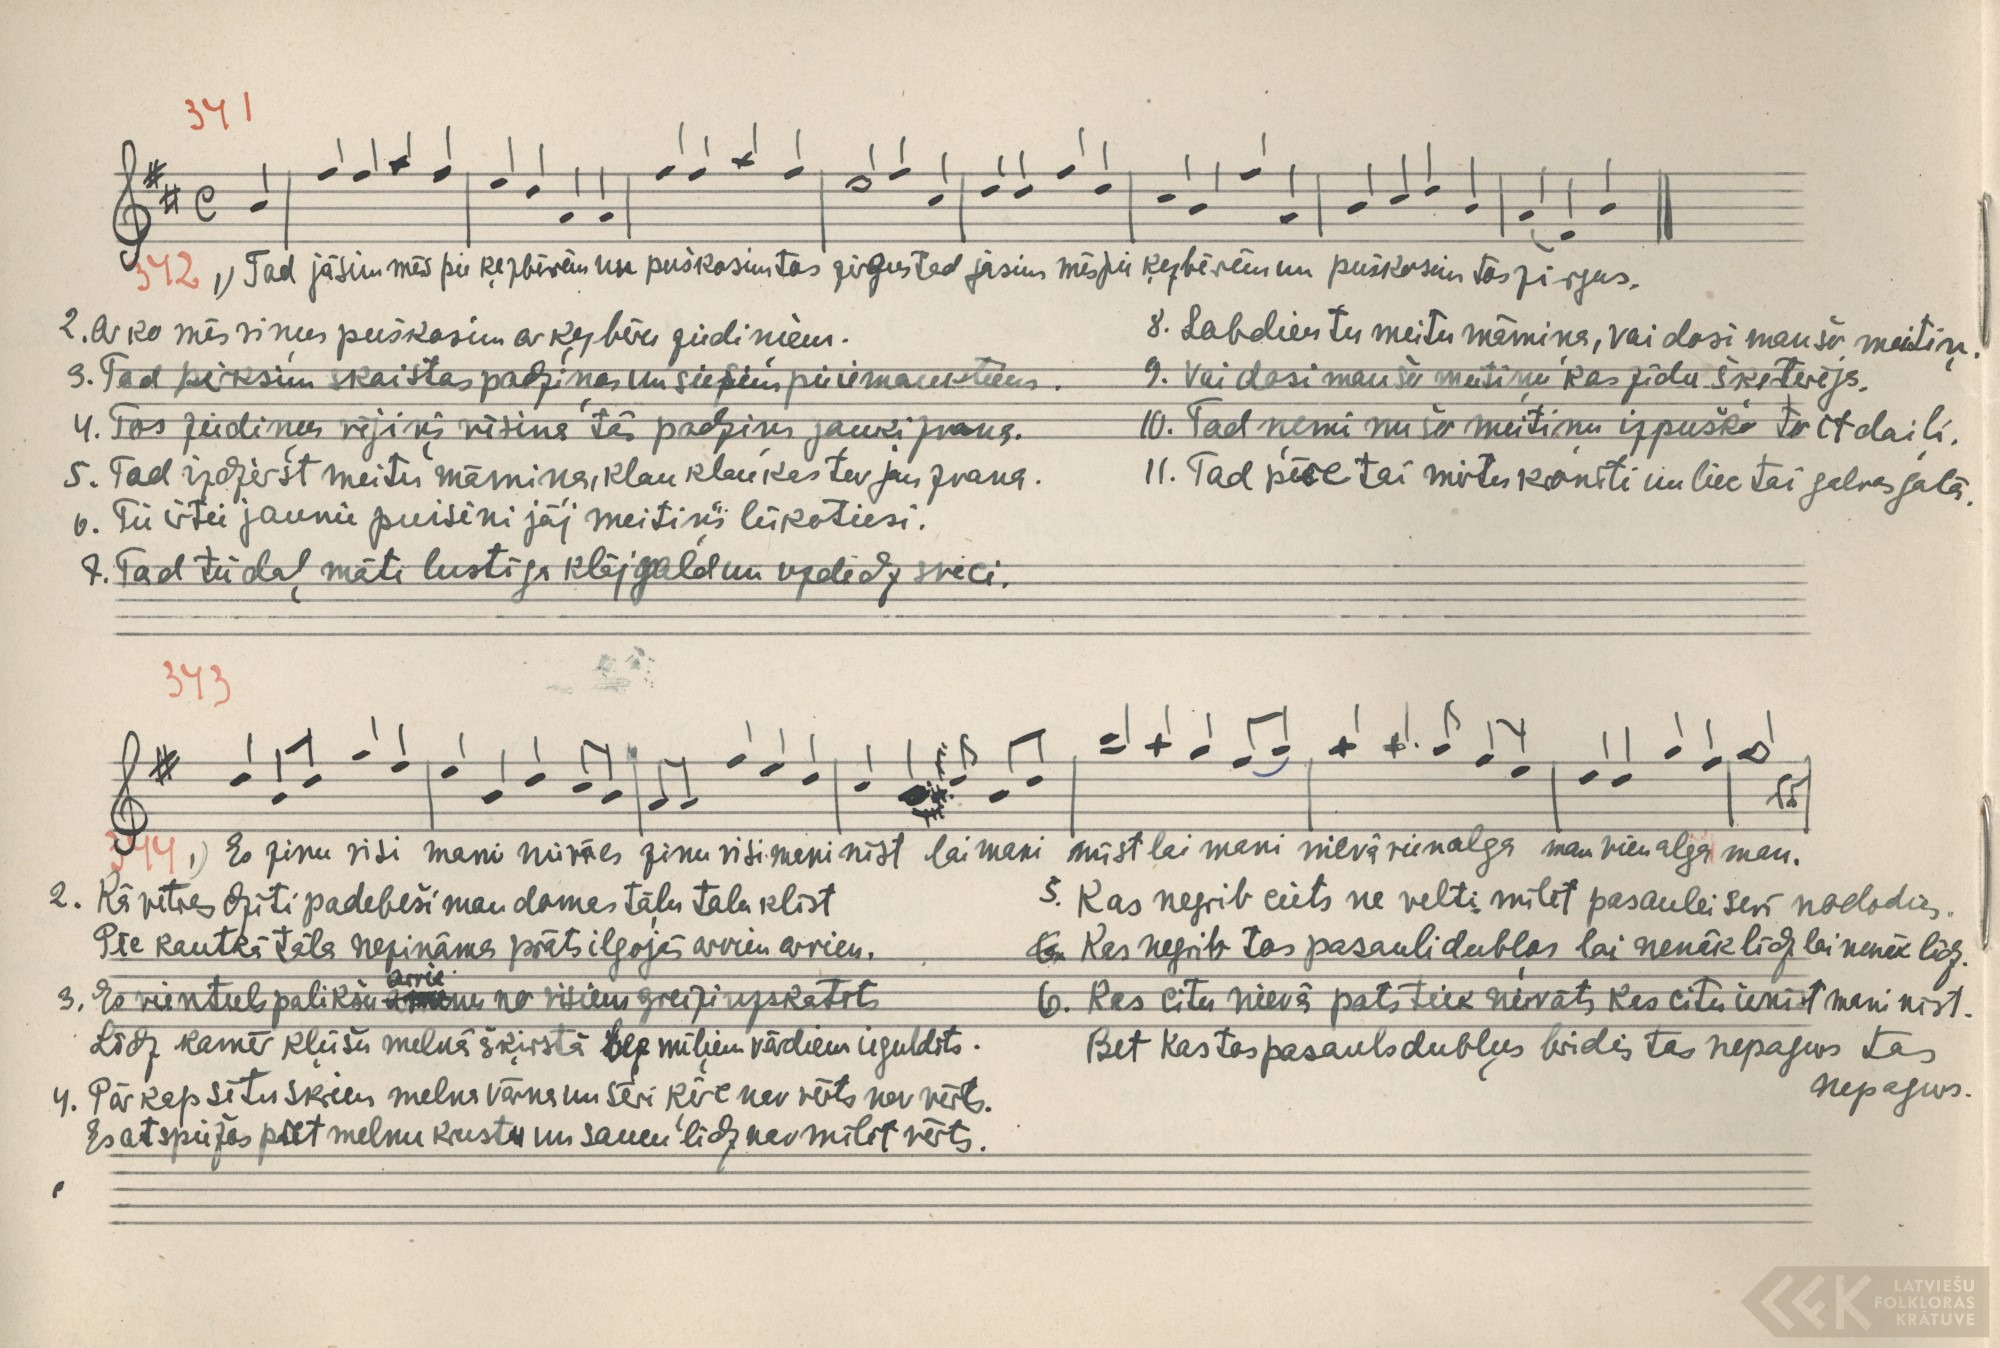 341
342 1) Tad jāsim mēs pie ķezbērēm un puškosim tos zirgus tad jāsim mēs pie ķezbērēm un puškosim tos zirgus.
2. Ar ko mēs viņus puškosim ar ķezbēru ziediņiem.
3. Tad pirksim skaistas podziņas un siesim pie iemauktiem.
4. Tos ziediņus vējiņš vēsina tās podziņas jauki zvana.
5. Tad izdzirst meitu māmiņa, klau klau kas tev jau zvana.
6. Tie ir tei jaunie puisēni jāj meitiņi lūkotiesi.
7. Tad tūdaļ māti lustīga klāj galdu un uzdedz sveci.
8. Labdien tu meitu māmiņa, vai dosi man šo meitiņ.
9. Vai dosi man šo meitiņu kas zīdu šķeterēja.
10. Tad ņemi nu šo meitiņu izpuško to it daiļi.
11. Tad pērc tai mirtu kroniti un liec tai galvas galā.
343
344 1) Es zinu visi mani nievāes zinu visi mani nīst lai mani nīst lai mani nievā vienalga man vienalga man.
2. Kā vētras dzīti padebeši man domas tāļu taļu klīst
Pēc kautkā tāla nezināma prāts ilgojās arvien arvien.
3. Es vientuls palikšu arvienu no visiem greizi uzskatīts
Līdz kamēr kļūšu melnā šķirstā bez mīļiem vārdiem ieguldīts.
4. Pār kapsētu skrien melna vārna un sēri ķērc nav vērts nav vērts.
Es atspiežos pret melnu krustu un saucu līdz nav mīlēt vērts.
5. Kas negrib ciets ne velti mīlēt pasaulei sevi nododies.
Kas negrib tos pasauli dubļos lai nenāk līdz lai nenāk līdz.
6. Kas citu nievā pats tiek nievāts kas citu ienīst mani nīst.
Bet kas tos pasauls dubļus bridis tas nepagurs tas
nepagurs.
LATVIEŠU
FOLKLORAS
KRĀTUVE